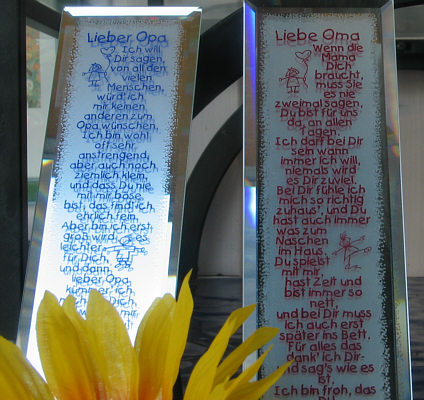 Lieber Opa
Ich will
Dir sagen,
von all den
vielen
Menschen,
würd' ich
mir keinen
anderen zum
Opa wünschen.
Ich bin wohl
oft sehr
anstrengend,
aber auch noch
ziemlich klein,
und dass Du nie
mit mir böse
bist, das find' ich
ehrlich fein.
Aber bin ich erst
groß wird es
leichter
für Dich,
und dann
lieber Opa,
kümmer' ich
mich Dich,
Liebe Oma
Wenn die
Mama
Dich
braucht,
muss Sie
es nie
zweimal sagen,
Du bist für uns
da, an allen
Tagen.
Ich darf bei Dir
sein wann
immer ich will,
niemals wird
es Dir zuviel.
Bei Dir fühle ich
mich so richtig
zuhaus', und Du
hast auch immer
was zum
Naschen
im Haus.
Du spielst
mit mir,
hast Zeit und
bist immer so
nett,
und bei Dir muss
ich auch erst
später ins Bett.
Für alles das
dank' ich Dir
und sag's wie es
ist,
Ich bin froh, das